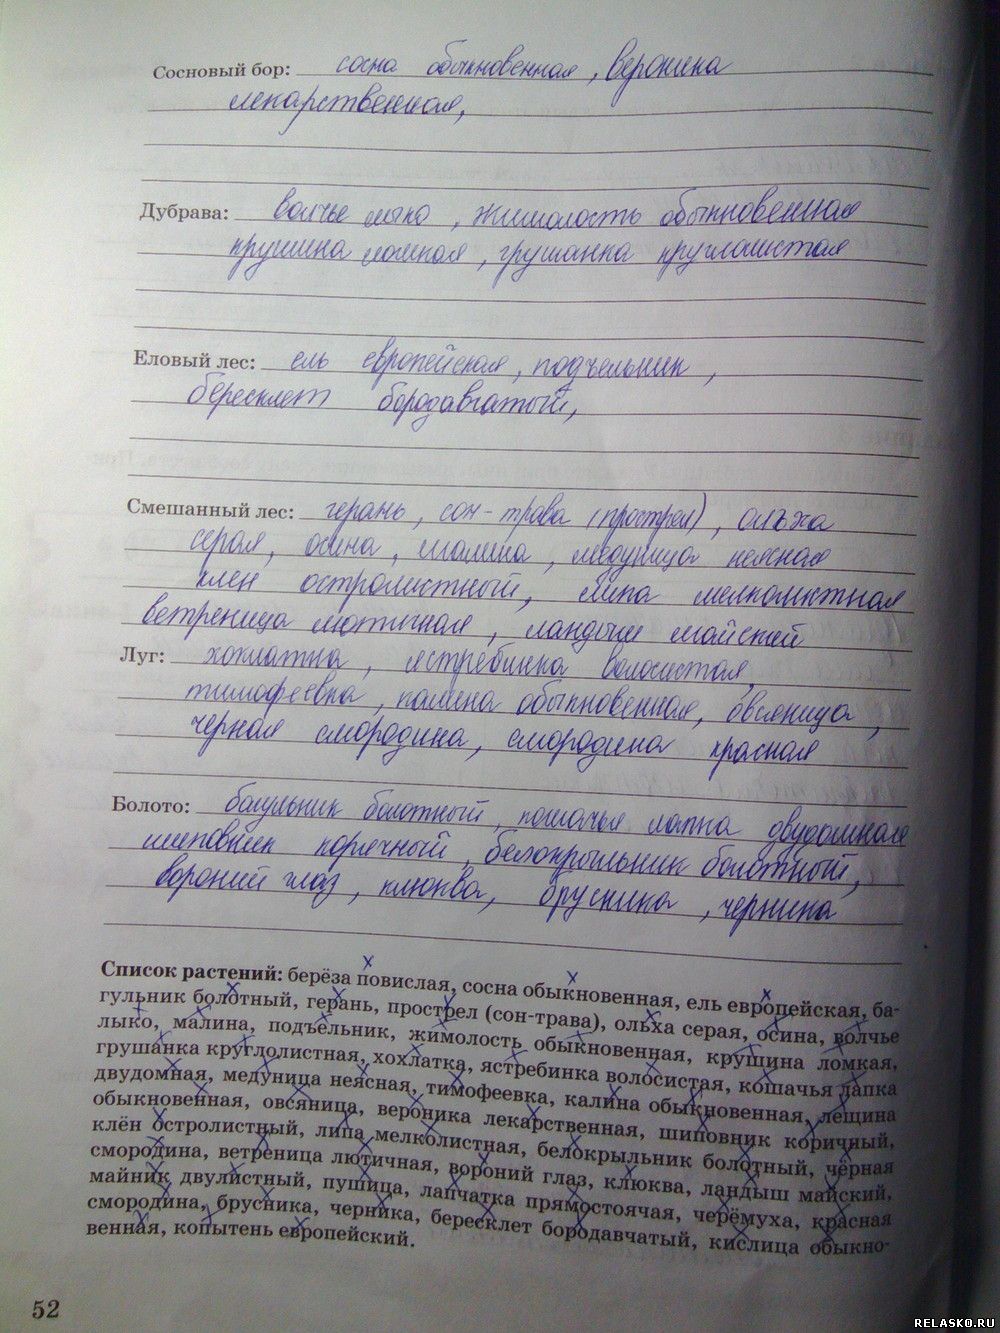 Сосновый бор: сосна обыкновенная, вероника
лекарственная,
Дубрава: волчье лыко, жимолость обыкновенная
крушина ломкая, грушанка круглолистая
Еловый лес: ель европейская, подъельник,
бересклет бородавчатый,
Смешанный лес: герань, сон-трава (прострел), ольха
серая, осина, малина, медуница неясная
клен остролистный, липа мелколистная
ветреница лютичная, ландыш майский
Луг: хохлатка, ястребинка волосистая,
тимофеевка, калина обыкновенная, овсяница,
черная смородина, смородина красная
Болото: багульник болотный, кошачья лапка двудомная
шиповник коричный, белокрыльник болотный,
вороний глаз, клюква, брусника, черника
Список растений: берёза повислая, сосна обыкновенная, ель европейская, ба-
гульник болотный, герань, прострел (сон-трава), ольха серая, осина, волчье
лыко, малина, подъельник, жимолость обыкновенная, крушина ломкая,
грушанка круглолистная, хохлатка, ястребинка волосистая, кошачья лапка
двудомная, медуница неясная, тимофеевка, калина обыкновенная, лещина
обыкновенная, овсяница, вероника лекарственная, шиповник коричный,
клён остролистный, липа мелколистная, белокрыльник болотный, чёрная
смородина, ветреница лютичная, вороний глаз, клюква, ландыш майский,
майник двулистный, пушица, лапчатка прямостоячая, черёмуха, красная
смородина, брусника, черника, бересклет бородавчатый, кислица обыкно-
венная, копытень европейский.
52
RELASKO.RU